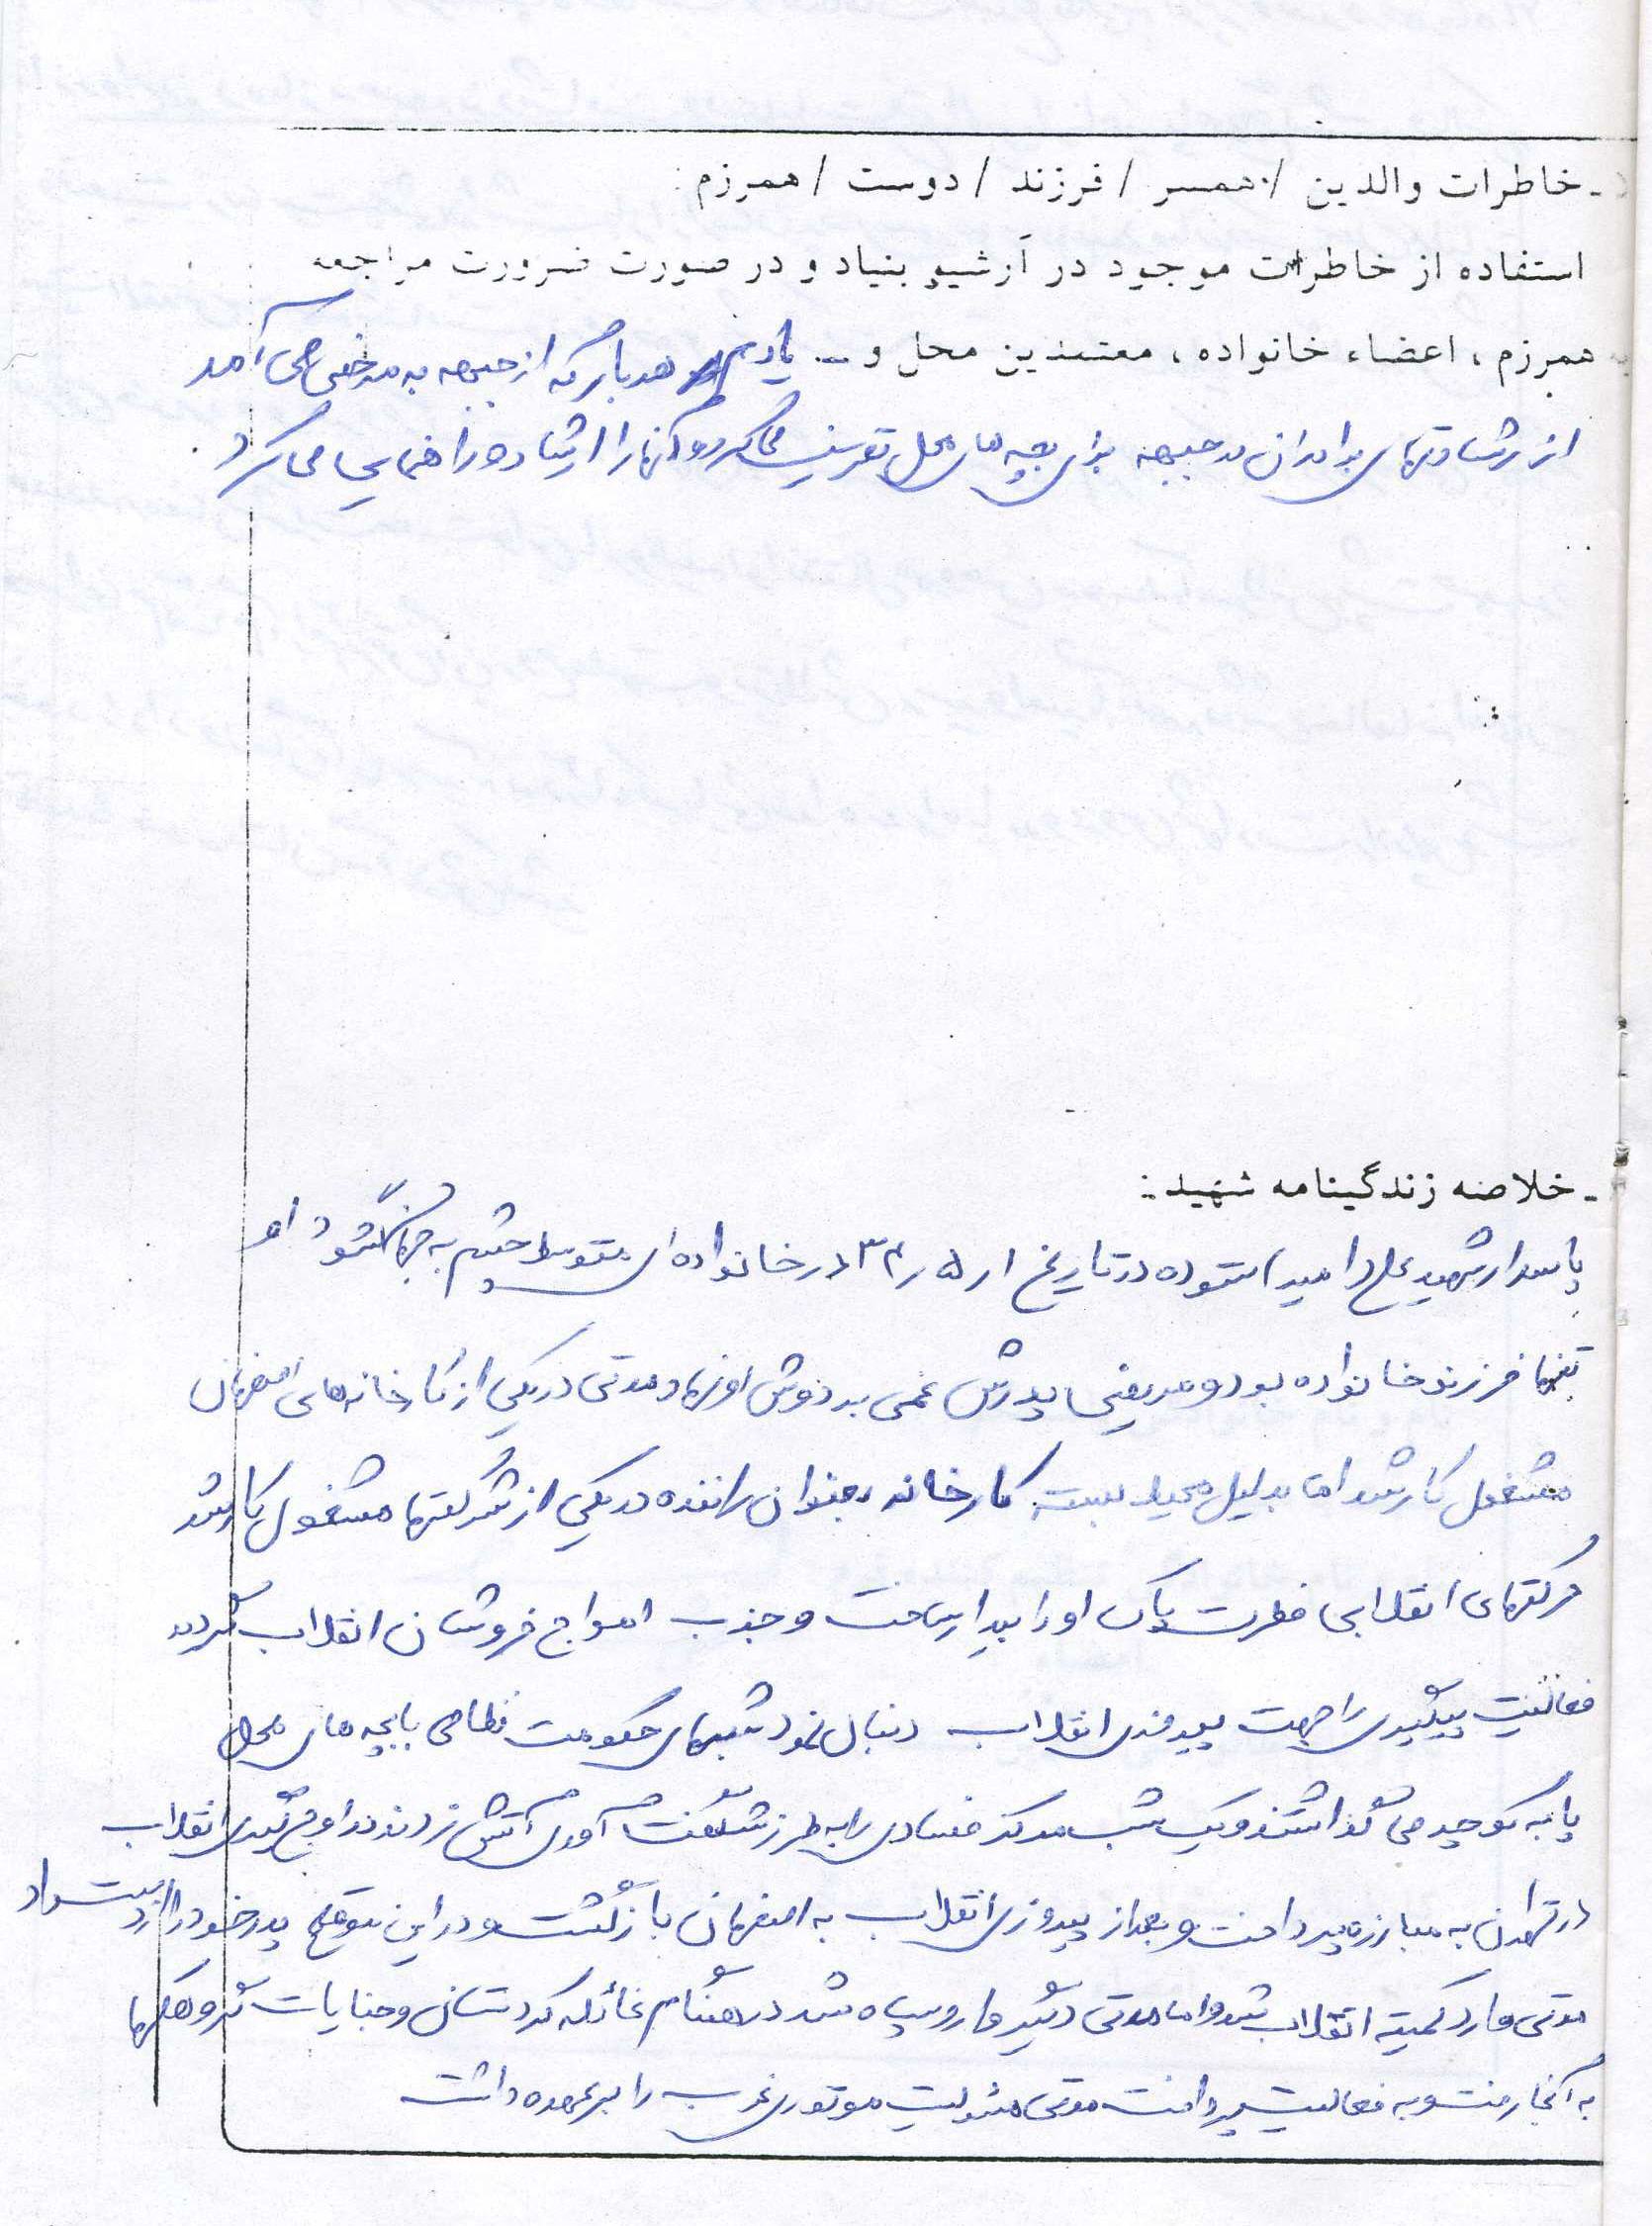 - خاطرات والدین / همسر / فرزند / دوست / همرزم :
استفاده از خاطرات موجود در آرشیو بنیاد و در صورت ضرورت مراجعه
به همرزم ، اعضاء خانواده ، معتمدین محل و ... یادم هر بار که از جبهه به مرخصی می آمد
از رشادتهای برادران در جبهه برای بچه های محل تعریف می کرد و آنها را ارشاد و راهنمایی می کرد
- خلاصه زندگینامه شهید :
پاسدار شهید علی (امید) ستوده در تاریخ ۱ر۵ر۳۴ در خانواده ای متوسط چشم به جهان گشود او
تنها فرزند خانواده بود و مریضی پدرش غمی بر دوش او نهاد مدتی در یکی از کارخانه های اصفهان
مشغول کار شد اما بدلیل محیط کارخانه بعنوان راننده در یکی از شرکتها مشغول کار شد
حرکتهای انقلابی فطرت پاک او را بیدار ساخت و جذب امواج خروشان انقلاب گردید
فعالیت پیگیری را جهت پیروزی انقلاب دنبال نمود شبهای حکومت نظامی با بچه های محل
پا به کوچه می گذاشتند و یک شب مرکز فسادی را به طرز شگفت آوری آتش زدند در اوج گیری انقلاب
در تهران به مبارزه پرداخت و بعد از پیروزی انقلاب به اصفهان بازگشت و در این موقع پدر خود را از دست داد
مدتی وارد کمیته انقلاب شد و اما مدتی دیگر وارد سپاه شد در هنگام غائله کردستان و جنایات گروهکها
به آنجا رفت و به فعالیت پرداخت مدتی مسئولیت موتوری غرب را بر عهده داشت